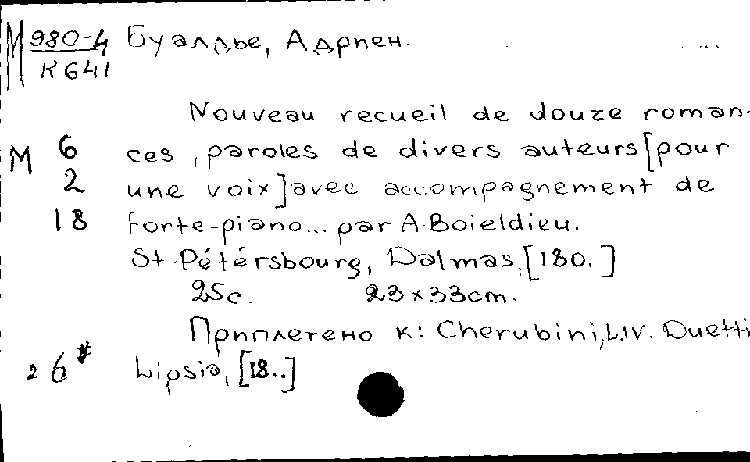 М 980-4 Буалдье, Адриен.
К 641
Nouveau recueil de douze roman-
М 6 ces, paroles de divers auteurs [pour
2 une voix] avec accompagnement de
18 forte-piano... par A. Boieldieu.
St.-Pétérsbourg, Dalmas, [180.]
25c. 23×33cm.
Приплетено к: Cherubini, L.IV. Duetti
26* Lipsia, [18..]